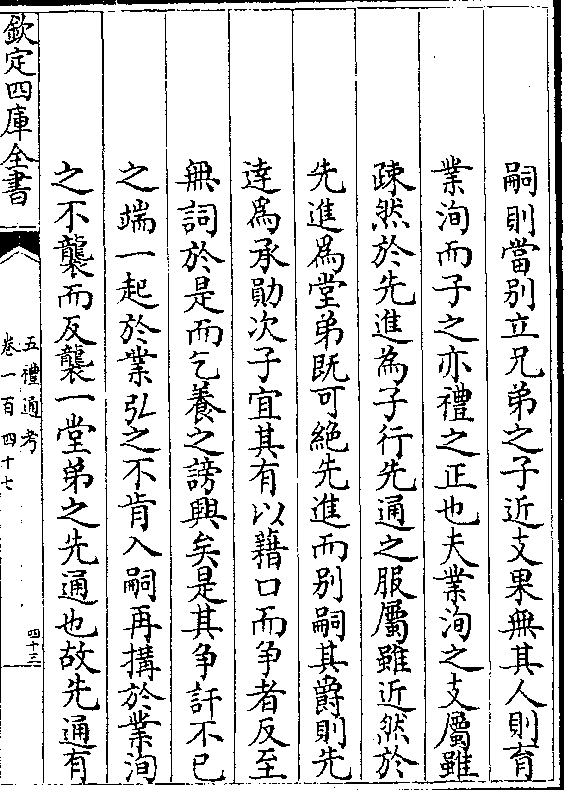 嗣則當别立兄弟之子近支果無其人則育
業洵而子之亦禮之正也夫業洵之支屬雖
疎然於先進為子行先通之服屬雖近然於
先進為堂弟既可絶先進而别嗣其爵則先
逹為承勛次子宜其有以藉口而争者反至
無詞於是而乞養之謗興矣是其争訐不已
之端一起於業弘之不肯入嗣再搆於業洵
之不襲而反襲一堂弟之先通也故先通有
欽定四庫全書
五禮通考
卷一百四十七
四十三